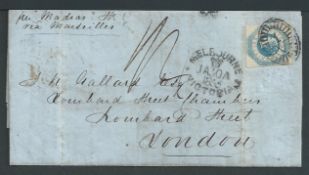 per Madras Str
via Marseilles
MELBOURNE
JA 10A
VICTORIA
J. H. Gallard Esqr
Lombard Street Chambers
Lombard Street
London